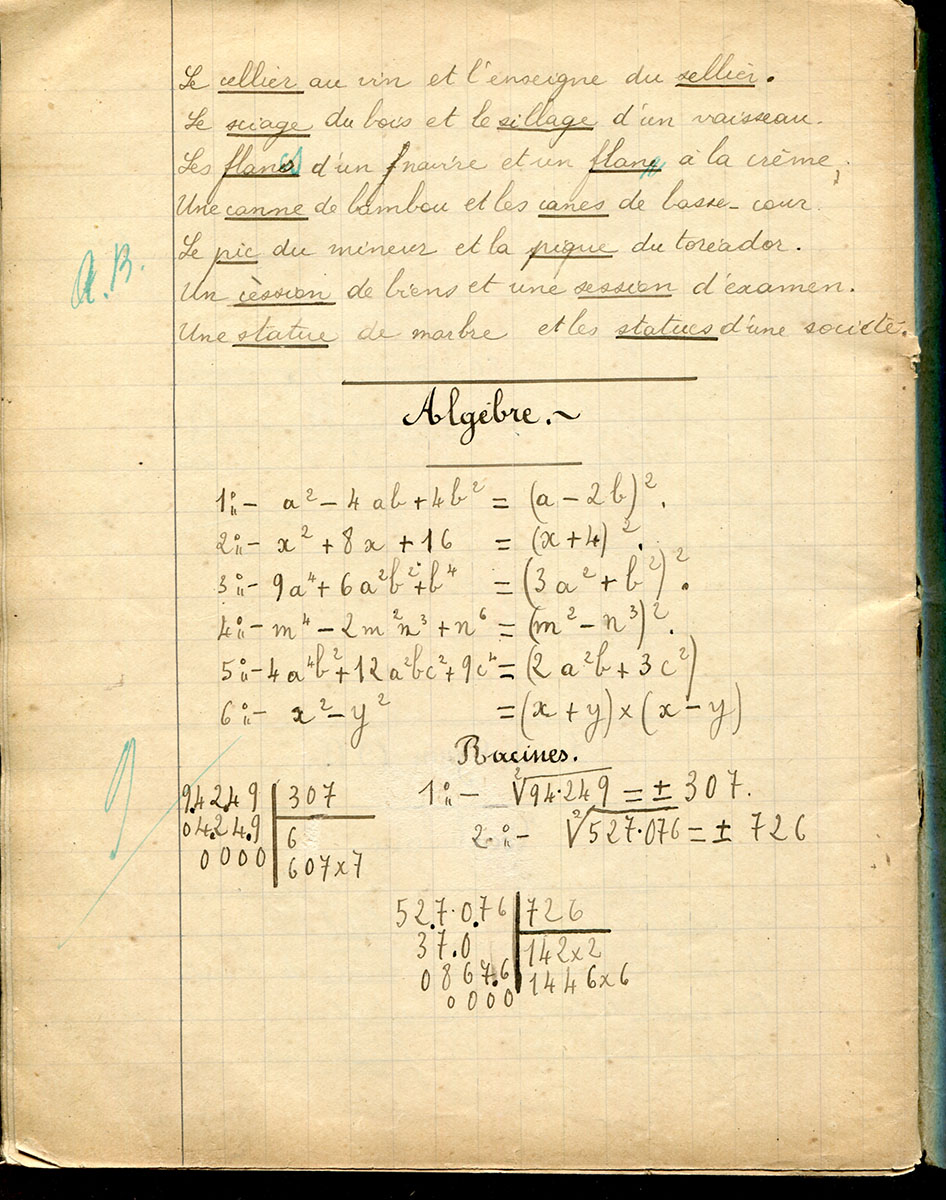 Le cellier au vin et l'enseigne du sellier.
Le sciage du bois et le sillage d'un vaisseau.
Les flancs d'un navire et un flan à la crème.
Une canne de bambou et les canes de basse-cour.
Le pic du mineur et la pique du toréador.
A.B.
Un cession de biens et une session d'examen.
Une statue de marbre et les statues d'une société.
Algèbre.~
1°:- a² - 4ab + 4b² = (a - 2b)².
2°:- x² + 8x + 16 = (x+4)².
3°:- 9a⁴ + 6a²b² + b⁴ = (3a² + b²)².
4°:- m⁴ - 2m²n³ + n⁶ = (m² - n³)².
5°:- 4a⁴b² + 12a²bc² + 9c⁴ = (2a²b + 3c²)
6°:- x² - y² = (x + y) × (x - y)
Racines.
9
1°:- ²√94.249 = ± 307.
2°:- ²√527.076 = ± 726
9.4.2.4.9 307
04.24.9 6
0000 607×7
527.0.76 726
37.0 142×2
0867.6 1446×6
0000